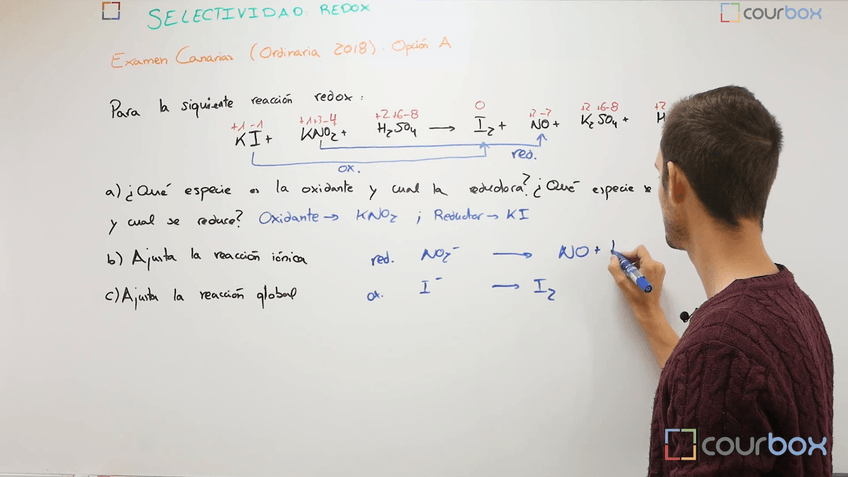 SELECTIVIDAD REDOX
courbox
Examen Canarias (Ordinaria 2018). Opción A
Para la siguiente reacción redox:
+1 -1 +1+3-4 +2+6-8 0 +2 -2 +2 +6-8 +2
KI + KNO₂ + H₂SO₄ → I₂ + NO + K₂SO₄ + H
ox. red.
a) ¿Qué especie es la oxidante y cual la reductora? ¿Qué especie se
y cual se reduce? Oxidante → KNO₂ ; Reductor → KI
b) Ajusta la reacción iónica red. NO₂⁻ → NO +
c) Ajusta la reacción global ox. I⁻ → I₂
courbox